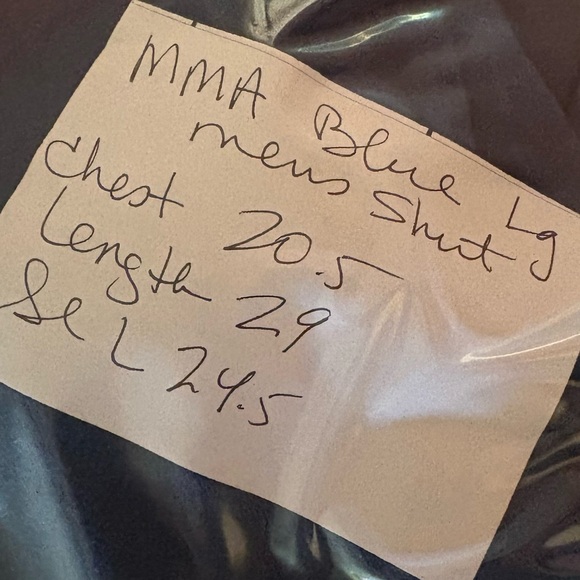 MMA Blue Lg
mens Shirt
Chest 20.5
Length 29
Sl L 24.5